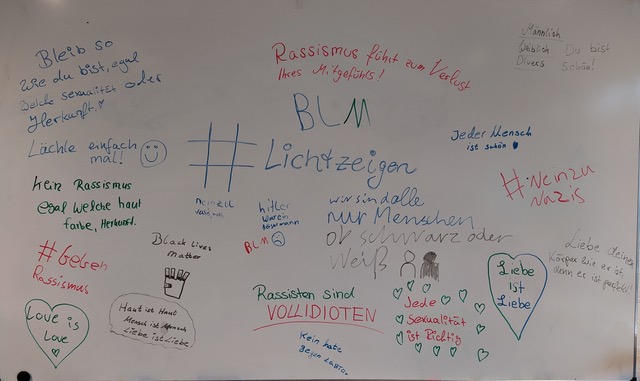 Bleib so
wie du bist, egal
Welche sexualität oder
Herkunft.
Rassismus führt zum Verlust
Ihres Mitgefühls!
Männlich
Weiblich Du bist
Divers schön!
BLM
Lächle einfach
mal!
#Lichtzeigen
Jeder Mensch
ist schön
Kein Rassismus
egal welche haut
farbe, Herkunft.
nein zu
hitler
war ein
BLM
wir sind alle
nur Menschen
ob schwarz oder
weiß
#Nein zu
Nazis
#Gegen
Rassismus
Black lives
matter
Liebe deinen
Körper wie er ist,
denn er ist perfekt!
Liebe
Ist
Liebe
Love is
Love
Haut ist Haut
Mensch ist Mensch
Liebe ist Liebe
Rassisten sind
VOLLIDIOTEN
Jede
sexualität
ist Richtig
Kein hate
gegen